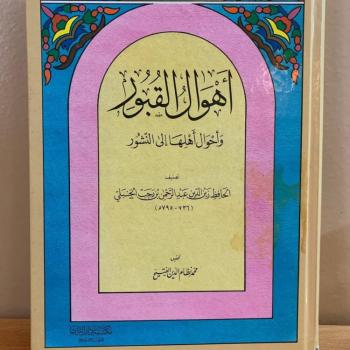 أهوال القبور
وأحوال أهلها إلى النشور
تصنيف
الحافظ زين الدين عبد الرحمن بن رجب الحنبلي
(٧٣٦ - ٧٩٥ه)
تحقيق
محمد نظام الدين الفتيح